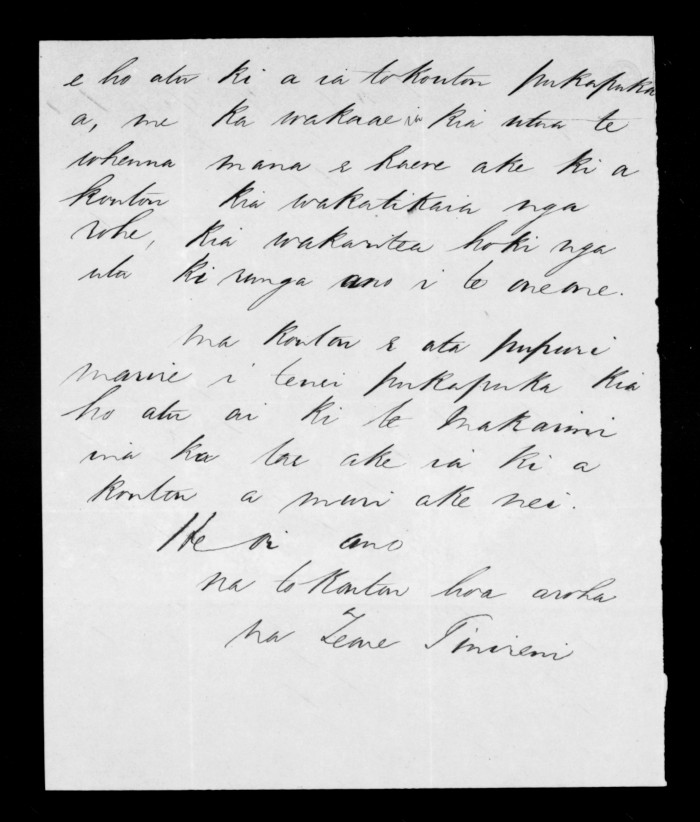 e ho atu ki a ia to koutou pukapuka
a, me ka wakaae ia kia utua te
whenua mana e haere ake ki a
koutou kia wakatikaia nga
rohe, kia wakaritea hoki nga
utu ki runga ano i te oneone.
ma koutou e ata pupuri
marire i tenei pukapuka kia
ho atu ai ki te Makarini
ina ka tae ake ia ki a
koutou a muri ake nei.
He oi ano
na to koutou hoa aroha
na Teone Tinireni